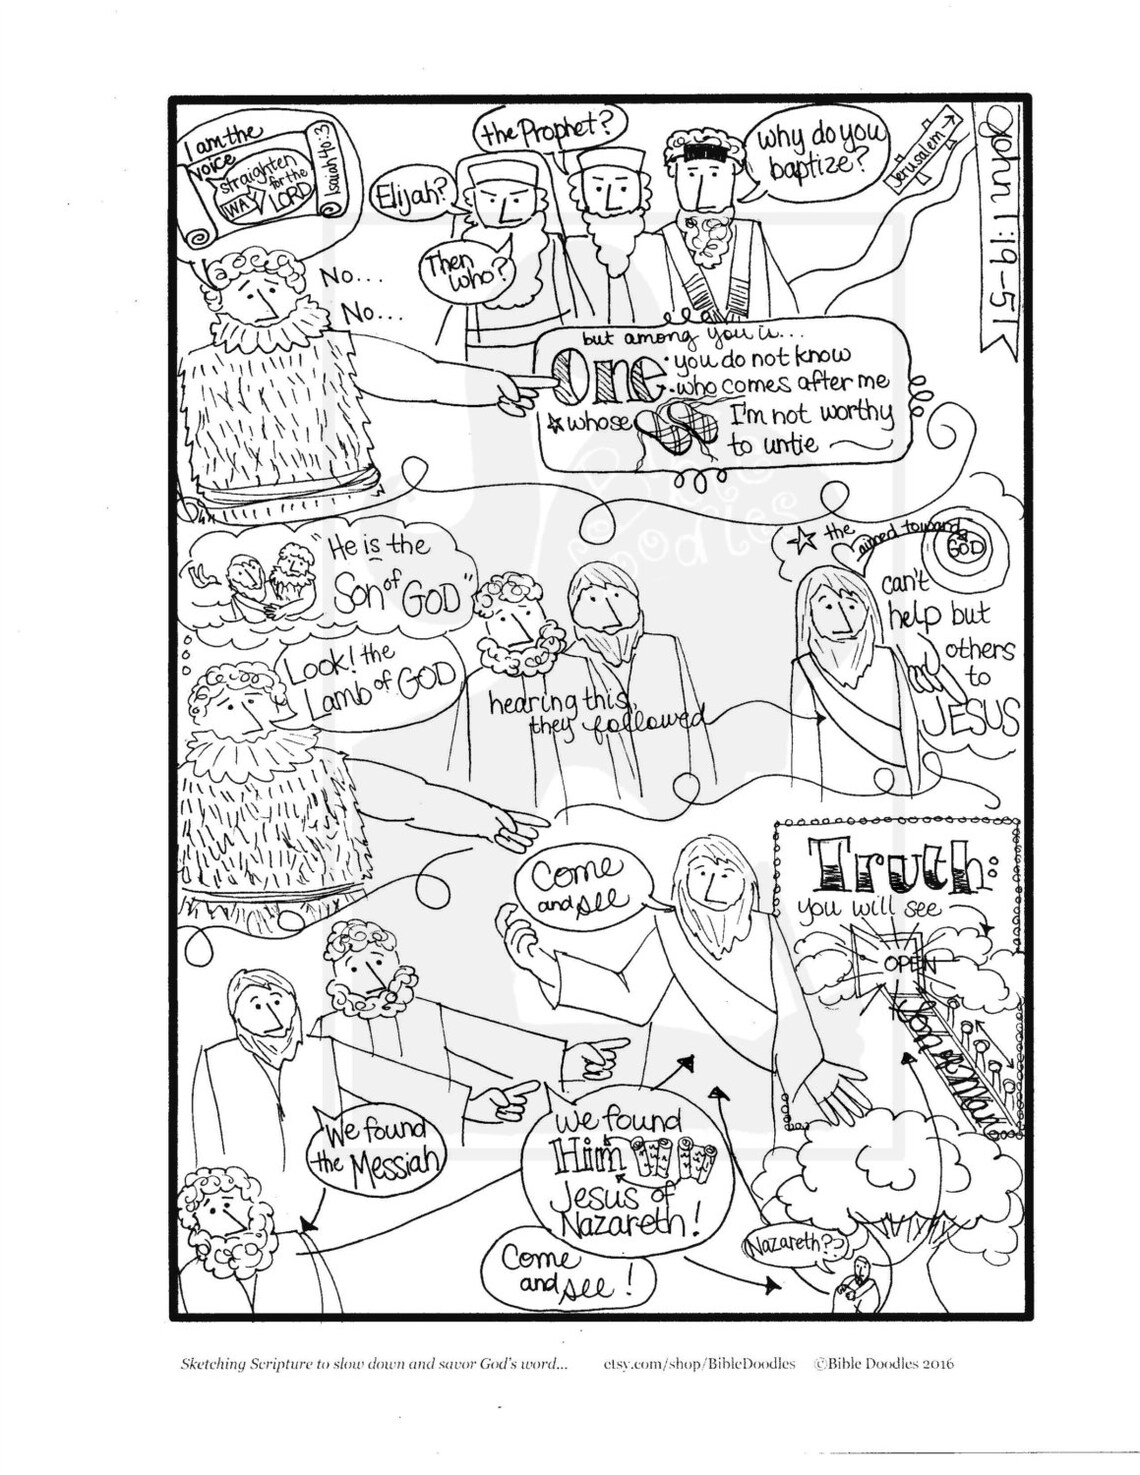 John 1:19-51
I am the
voice
straighten
WAY
for the
LORD
Isaiah 40:3
Elijah?
the Prophet?
Then
who?
why do you
baptize?
Jerusalem
No...
No...
but among you is...
One
you do not know
who comes after me
whose
I'm not worthy
to untie
"He is the
Son of GOD"
Look! the
Lamb of GOD
hearing this,
they followed
the
aimed toward
GOD
can't
help but
others
to
JESUS
Come
and see
Truth:
you will see
OPEN
Son of Man
We found
the Messiah
We found
Him
Jesus of
Nazareth!
Come
and see!
Nazareth??
Bible
Doodles
Sketching Scripture to slow down and savor God's word... etsy.com/shop/BibleDoodles ©Bible Doodles 2016